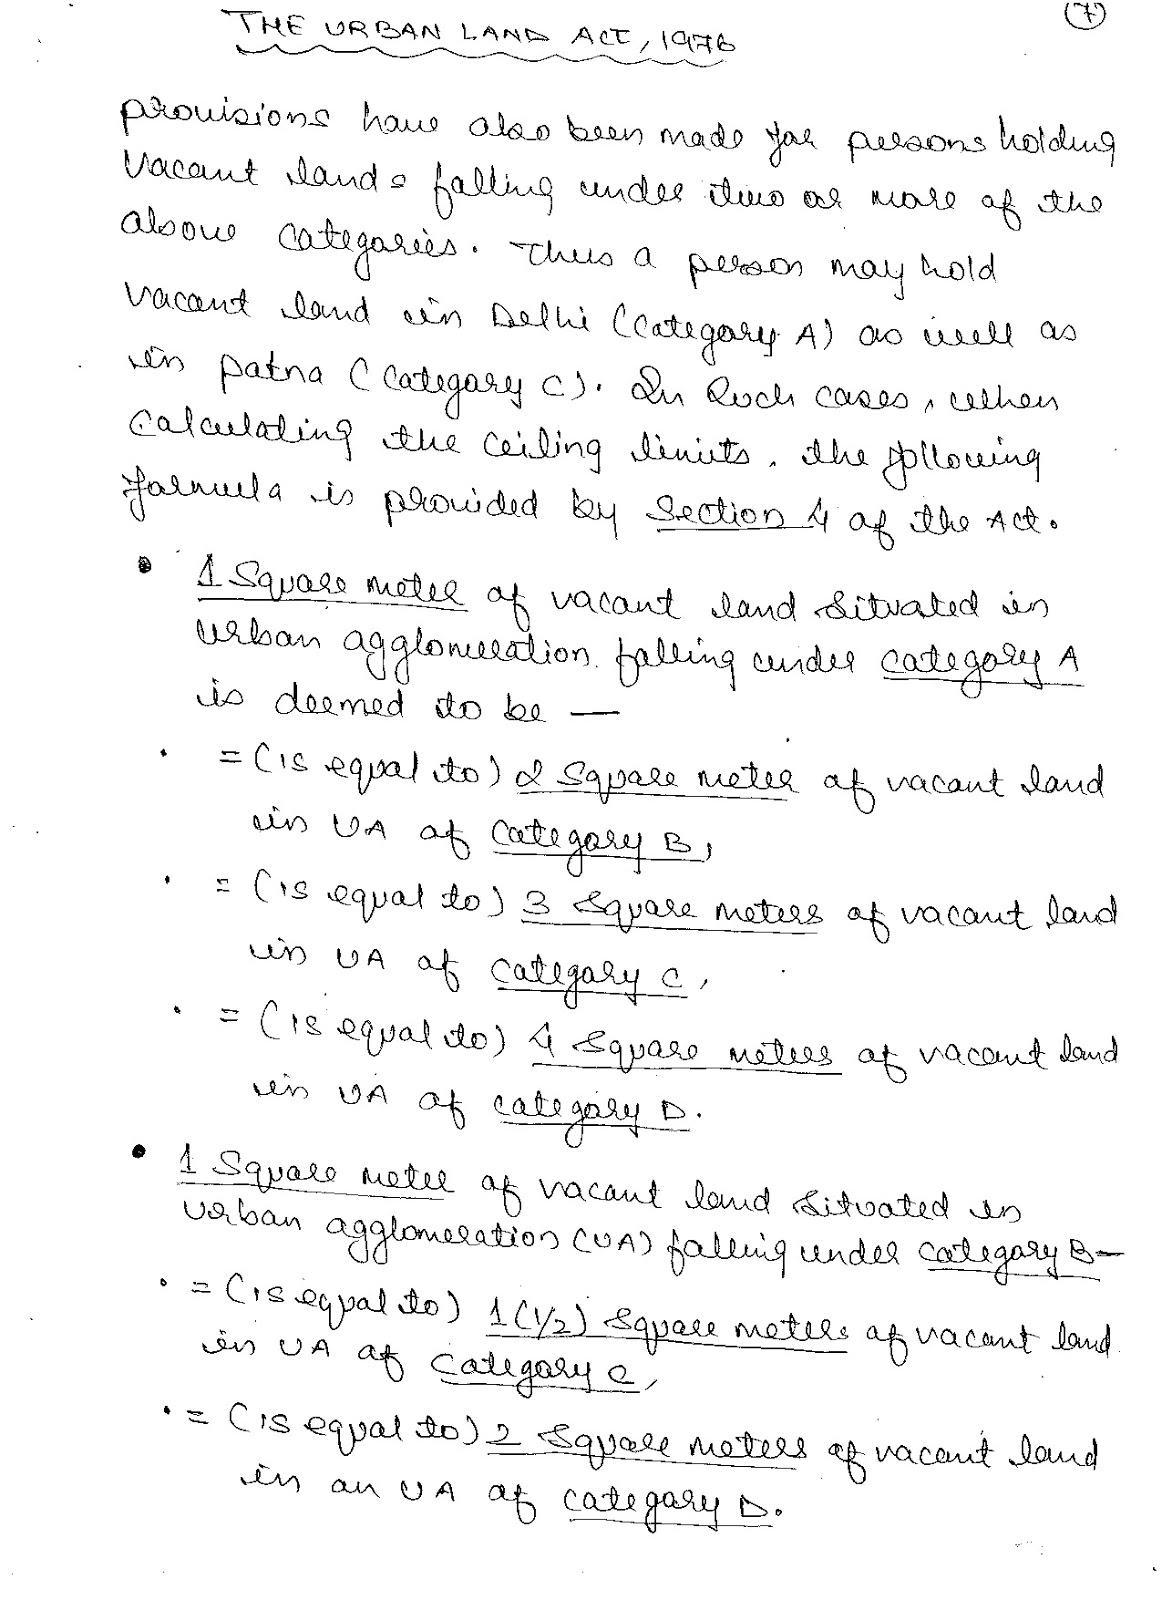 (7)
THE URBAN LAND ACT, 1976
provisions have also been made for persons holding
vacant lands falling under two or more of the
above categories. Thus a person may hold
vacant land in Delhi (Category A) as well as
in patna (Category C). In Such cases, when
Calculating the ceiling limits, the following
formula is provided by Section 4 of the Act.
• 1 Square meter of vacant land situated in
urban agglomeration falling under category A
is deemed to be —
• = (is equal to) 2 square meter of vacant land
in UA of Category B,
• = (is equal to) 3 square meters of vacant land
in UA of category C,
• = (is equal to) 4 square meters of vacant land
in UA of category D.
• 1 Square meter of vacant land situated in
urban agglomeration (UA) falling under category B—
• = (is equal to) 1(1/2) square meters of vacant land
in UA of Category C,
• = (is equal to) 2 square meters of vacant land
in an UA of category D.